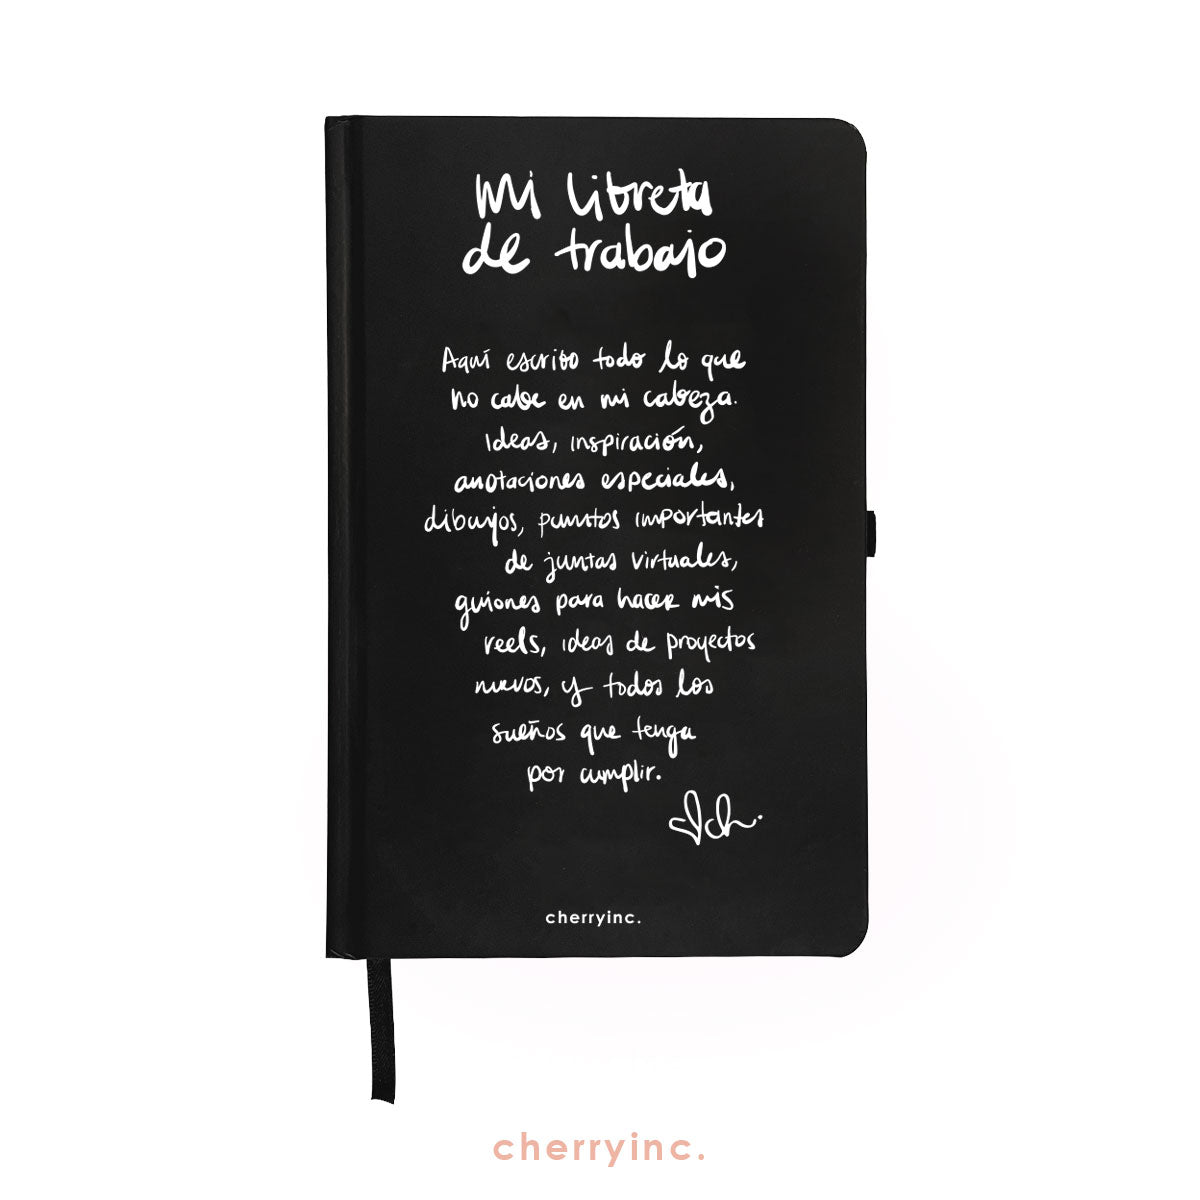 Mi libreta
de trabajo
Aquí escribo todo lo que
no cabe en mi cabeza.
Ideas, inspiración,
anotaciones especiales,
dibujos, puntos importantes
de juntas virtuales,
guiones para hacer mis
reels, ideas de proyectos
nuevos, y todos los
sueños que tenga
por cumplir.
ch.
cherryinc.
cherryinc.